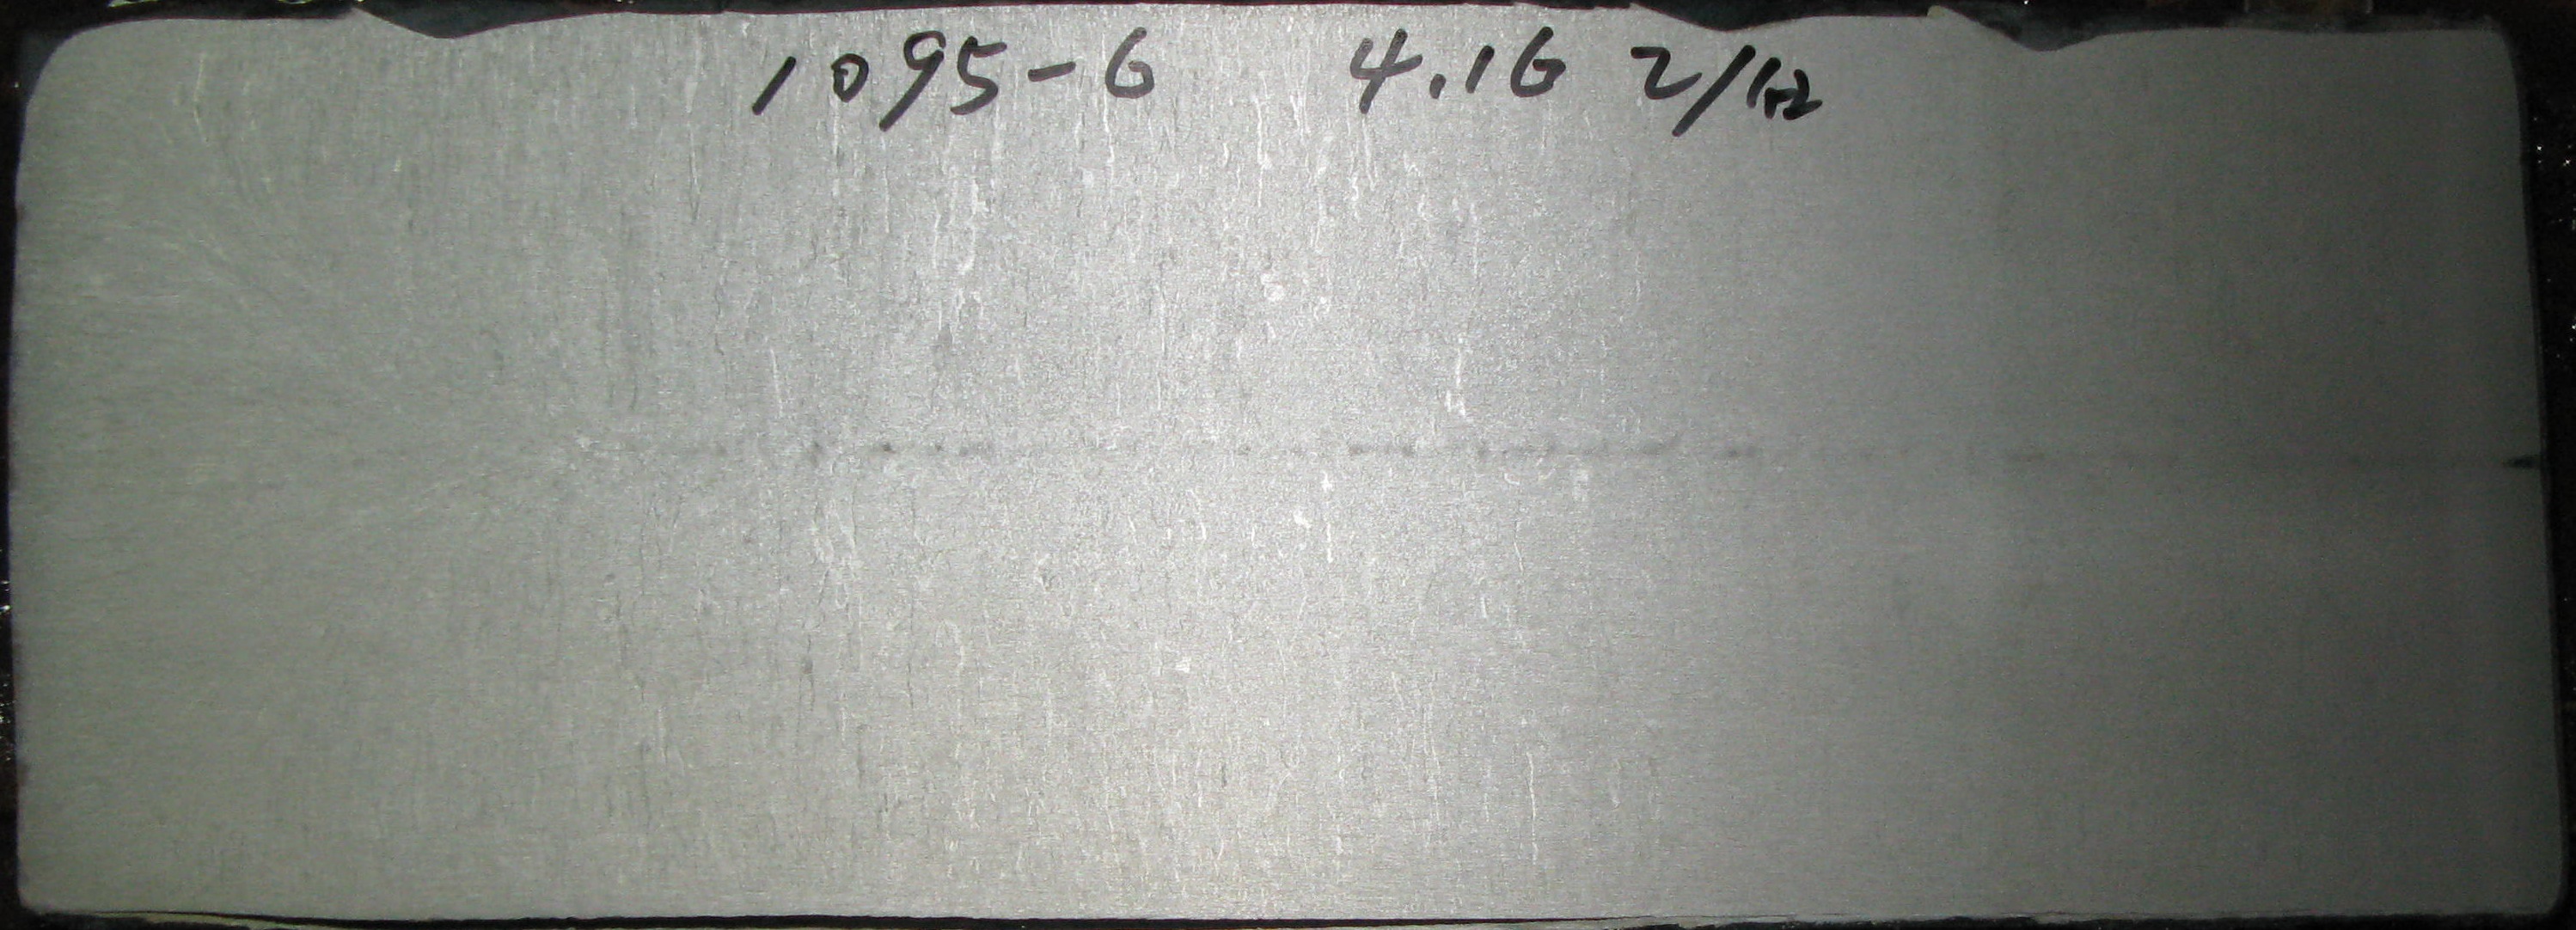 1095-6 4.16 2/1#2